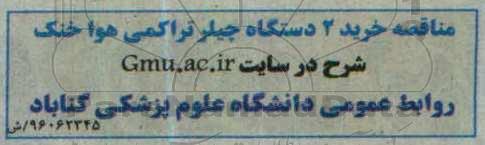 مناقصه خرید ۲ دستگاه چیلر تراکمی هوا خنک
شرح در سایت Gmu.ac.ir
روابط عمومی دانشگاه علوم پزشکی گناباد
۹۶۰۶۲۳۴۵/ش